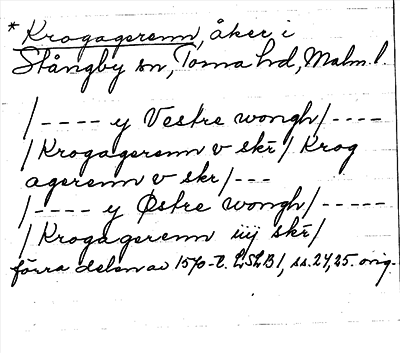 * Krogagerenn, åker i
Stångby sn, Torna hd, Malm. l.
/---- y Vestre wongh/----
/Krogagerenn v skr̄/ Krog
agerenn v skr/---
/---- y Østre wongh/-----
/Krogagerenn iiij skr̄/
förra delen av 1570-t. LSLB1, ss. 24, 25. orig.